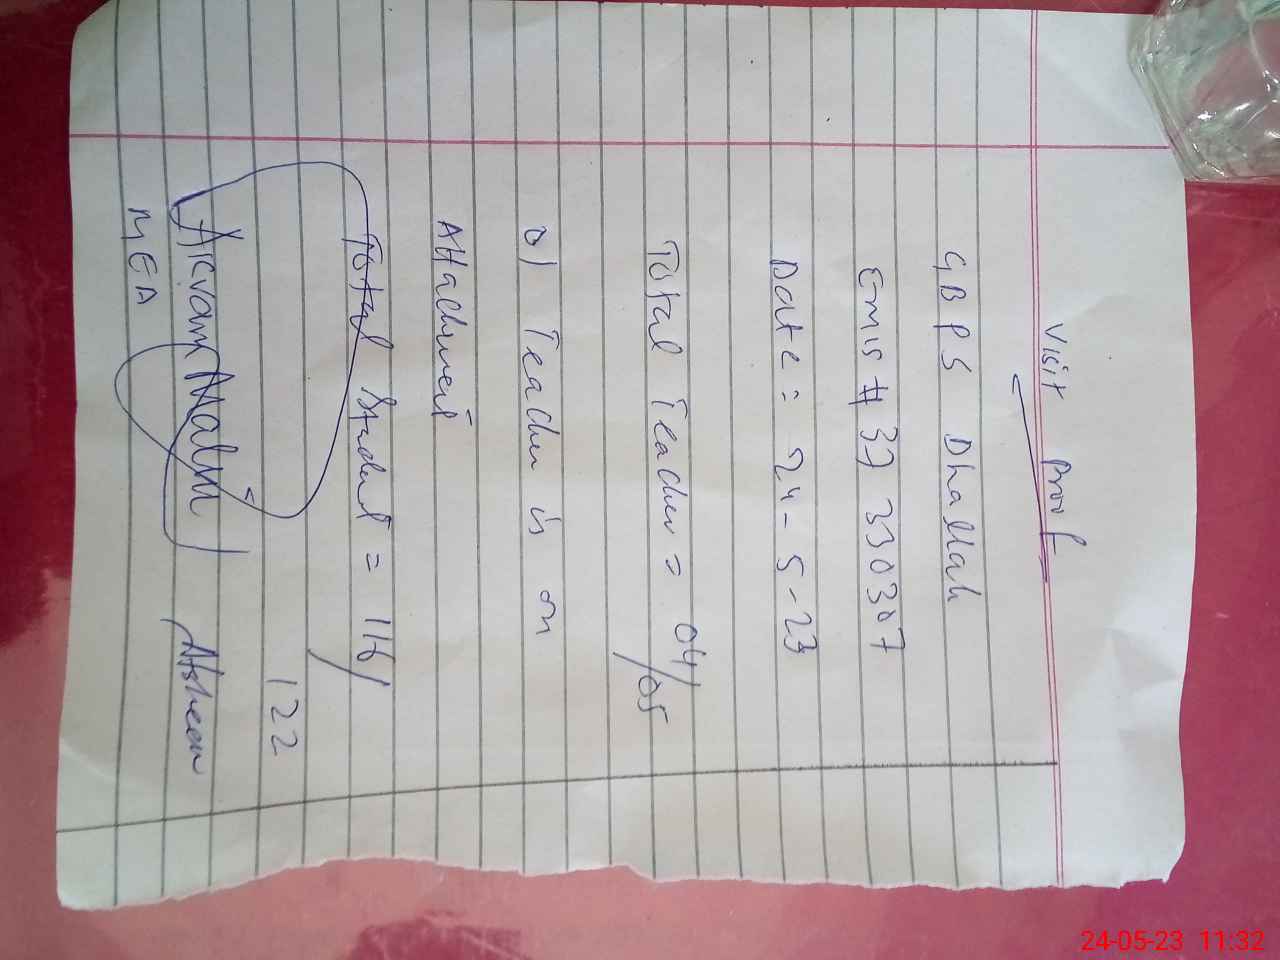 Visit Proof
GBPS Dhallah
Emis # 37330307
Date: 24-5-23
Total Teacher = 04/05
01 Teacher is on
Attachment
Total Student = 116/122
Akram Malin
MEA
24-05-23 11:32